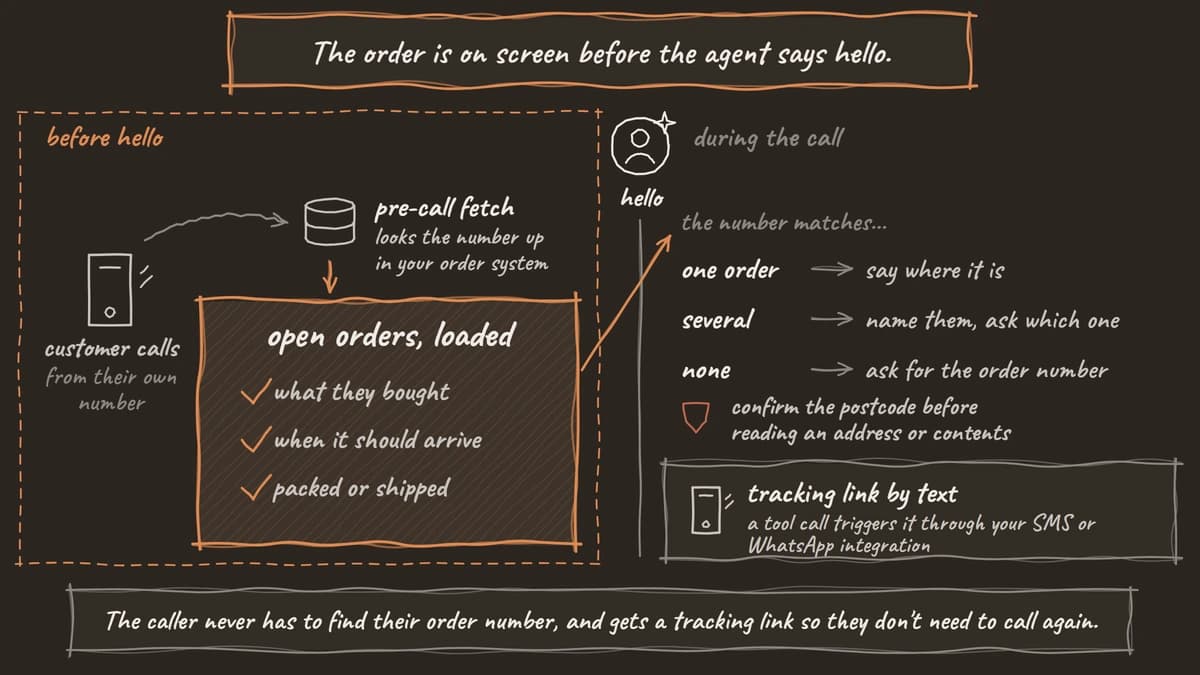 The order is on screen before the agent says hello.
before hello
pre-call fetch
looks the number up
in your order system
customer calls
from their own
number
open orders, loaded
what they bought
when it should arrive
packed or shipped
hello
during the call
the number matches...
one order
say where it is
several
name them, ask which one
none
ask for the order number
confirm the postcode before
reading an address or contents
tracking link by text
a tool call triggers it through your SMS or
WhatsApp integration
The caller never has to find their order number, and gets a tracking link so they don't need to call again.